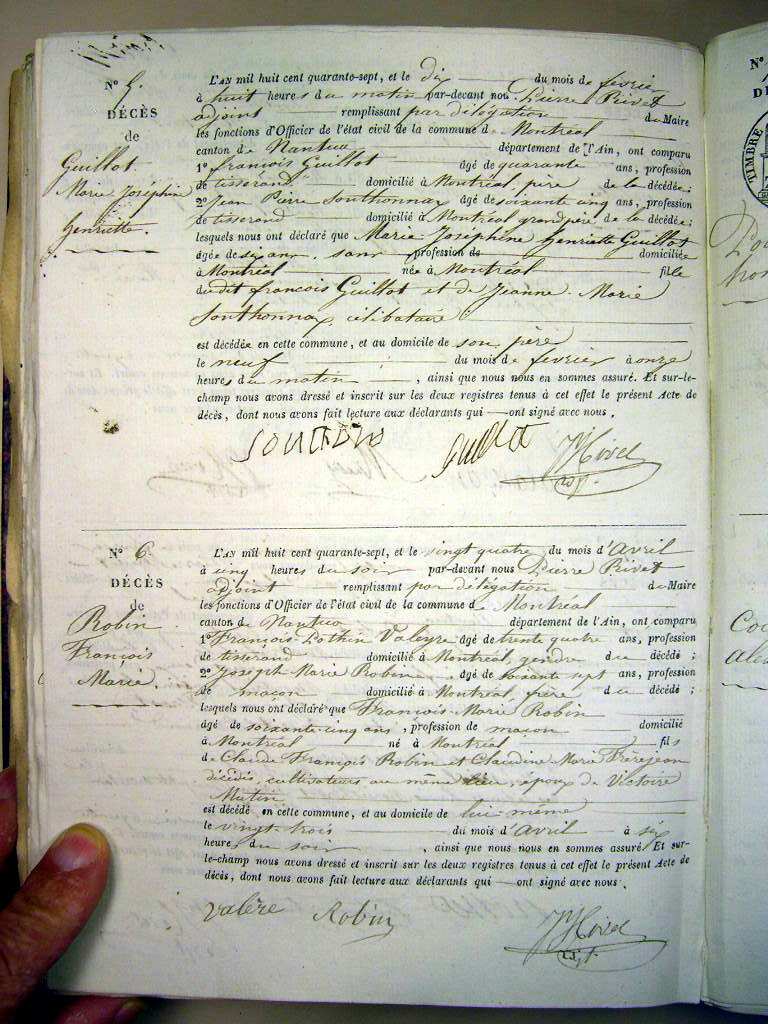 N° 5.
DÉCÈS
de
Guillot
Marie Joséphine
Henriette.
L'AN mil huit cent quarante-sept, et le dix du mois de février
à huit heures du matin par-devant nous Pierre Rivet
adjoint remplissant par délégation du Maire
les fonctions d'Officier de l'état civil de la commune de Montréal
canton de Nantua département de l'Ain, ont comparu
1° françois Guillot âgé de quarante ans, profession
de tisserand domicilié à Montréal, père de la décédée;
2° Jean Pierre Southonnax âgé de soixante cinq ans, profession
de tisserand domicilié à Montréal grand père de la décédée;
lesquels nous ont déclaré que Marie Joséphine Henriette Guillot
âgée de six ans, sans profession de domiciliée
à Montréal née à Montréal fille
dudit françois Guillot et de Jeanne Marie
Southonnax, célibataire
est décédée en cette commune, et au domicile de son père
le neuf du mois de février à onze
heures du matin, ainsi que nous nous en sommes assuré. Et sur-le-
champ nous avons dressé et inscrit sur les deux registres tenus à cet effet le présent Acte de
décès, dont nous avons fait lecture aux déclarants qui ont signé avec nous.
Rivet
adjt.
N° 6.
DÉCÈS
de
Robin
François
Marie.
L'AN mil huit cent quarante-sept, et le vingt quatre du mois d'Avril
à cinq heures du soir par-devant nous Pierre Rivet
adjoint remplissant par délégation du Maire
les fonctions d'Officier de l'état civil de la commune de Montréal
canton de Nantua département de l'Ain, ont comparu
1° François Pothin Valeyre âgé de trente quatre ans, profession
de tisserand domicilié à Montréal, gendre du décédé;
2° Joseph Marie Robin âgé de soixante sept ans, profession
de maçon domicilié à Montréal, frère du décédé;
lesquels nous ont déclaré que François-Marie Robin
âgé de soixante-cinq ans, profession de maçon domicilié
à Montréal né à Montréal fils
de Claude François Robin et Claudine Marie Frèrejean
décédés, cultivateurs au même lieu, époux de Victoire
Mutin
est décédé en cette commune, et au domicile de lui-même
le vingt-trois du mois d'Avril à six
heures du soir, ainsi que nous nous en sommes assuré. Et sur-
le-champ nous avons dressé et inscrit sur les deux registres tenus à cet effet le présent Acte de
décès, dont nous avons fait lecture aux déclarants qui ont signé avec nous.
valère Robin Rivet
adjt.
N°
TIMBRE